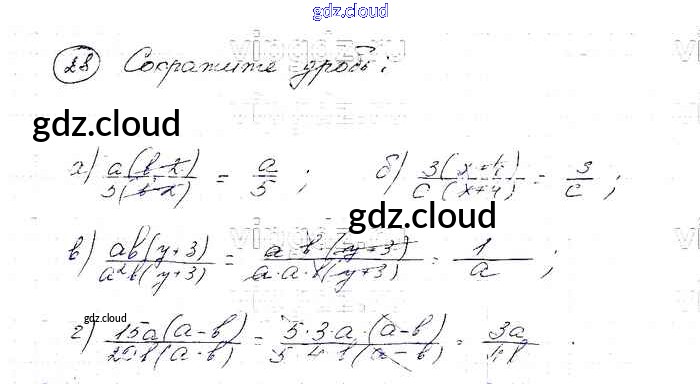 gdz.cloud
28 Сократите дробь:
gdz.cloud
а) a(b-2)/5(b-2) = a/5 ; б) 3(x+4)/c(x+4) = 3/c ;
gdz.cloud
в) ab(y+3)/a²b(y+3) = a·b·(y+3)/a·a·b(y+3) = 1/a ;
gdz.cloud
г) 15a(a-b)/20b(a-b) = 5·3·a·(a-b)/5·4·b(a-b) = 3a/4b .